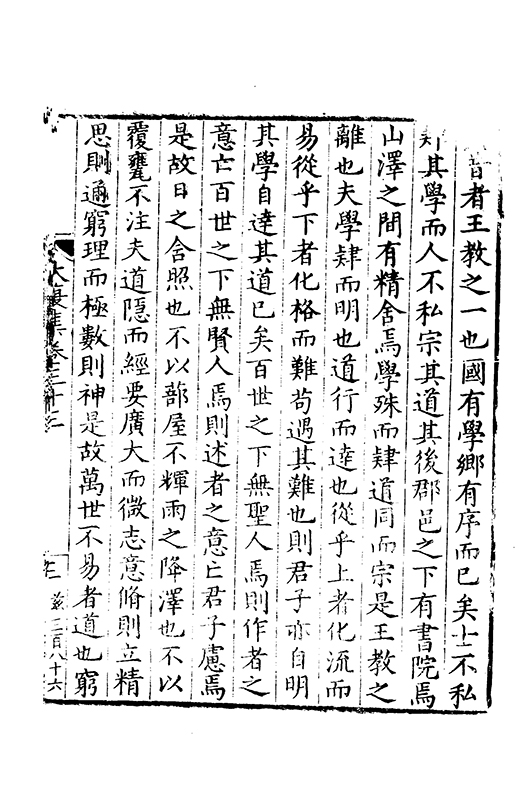 昔者王教之一也國有學鄉有序而已矣士不私
其學而人不私宗其道其後郡邑之下有書院焉
山澤之間有精舍焉學殊而肄道同而宗是王教之
離也夫學肄而明也道行而達也從乎上者化流而
易從乎下者化格而難苟遇其難也則君子亦自明
其學自達其道已矣百世之下無聖人焉則作者之
意亡百世之下無賢人焉則述者之意亡君子慮焉
是故日之舍照也不以蔀屋不輝雨之降澤也不以
覆甕不注夫道隱而經要廣大而微志意脩則立精
思則通窮理而極數則神是故萬世不易者道也窮
大復集卷三十
茲三百八十六